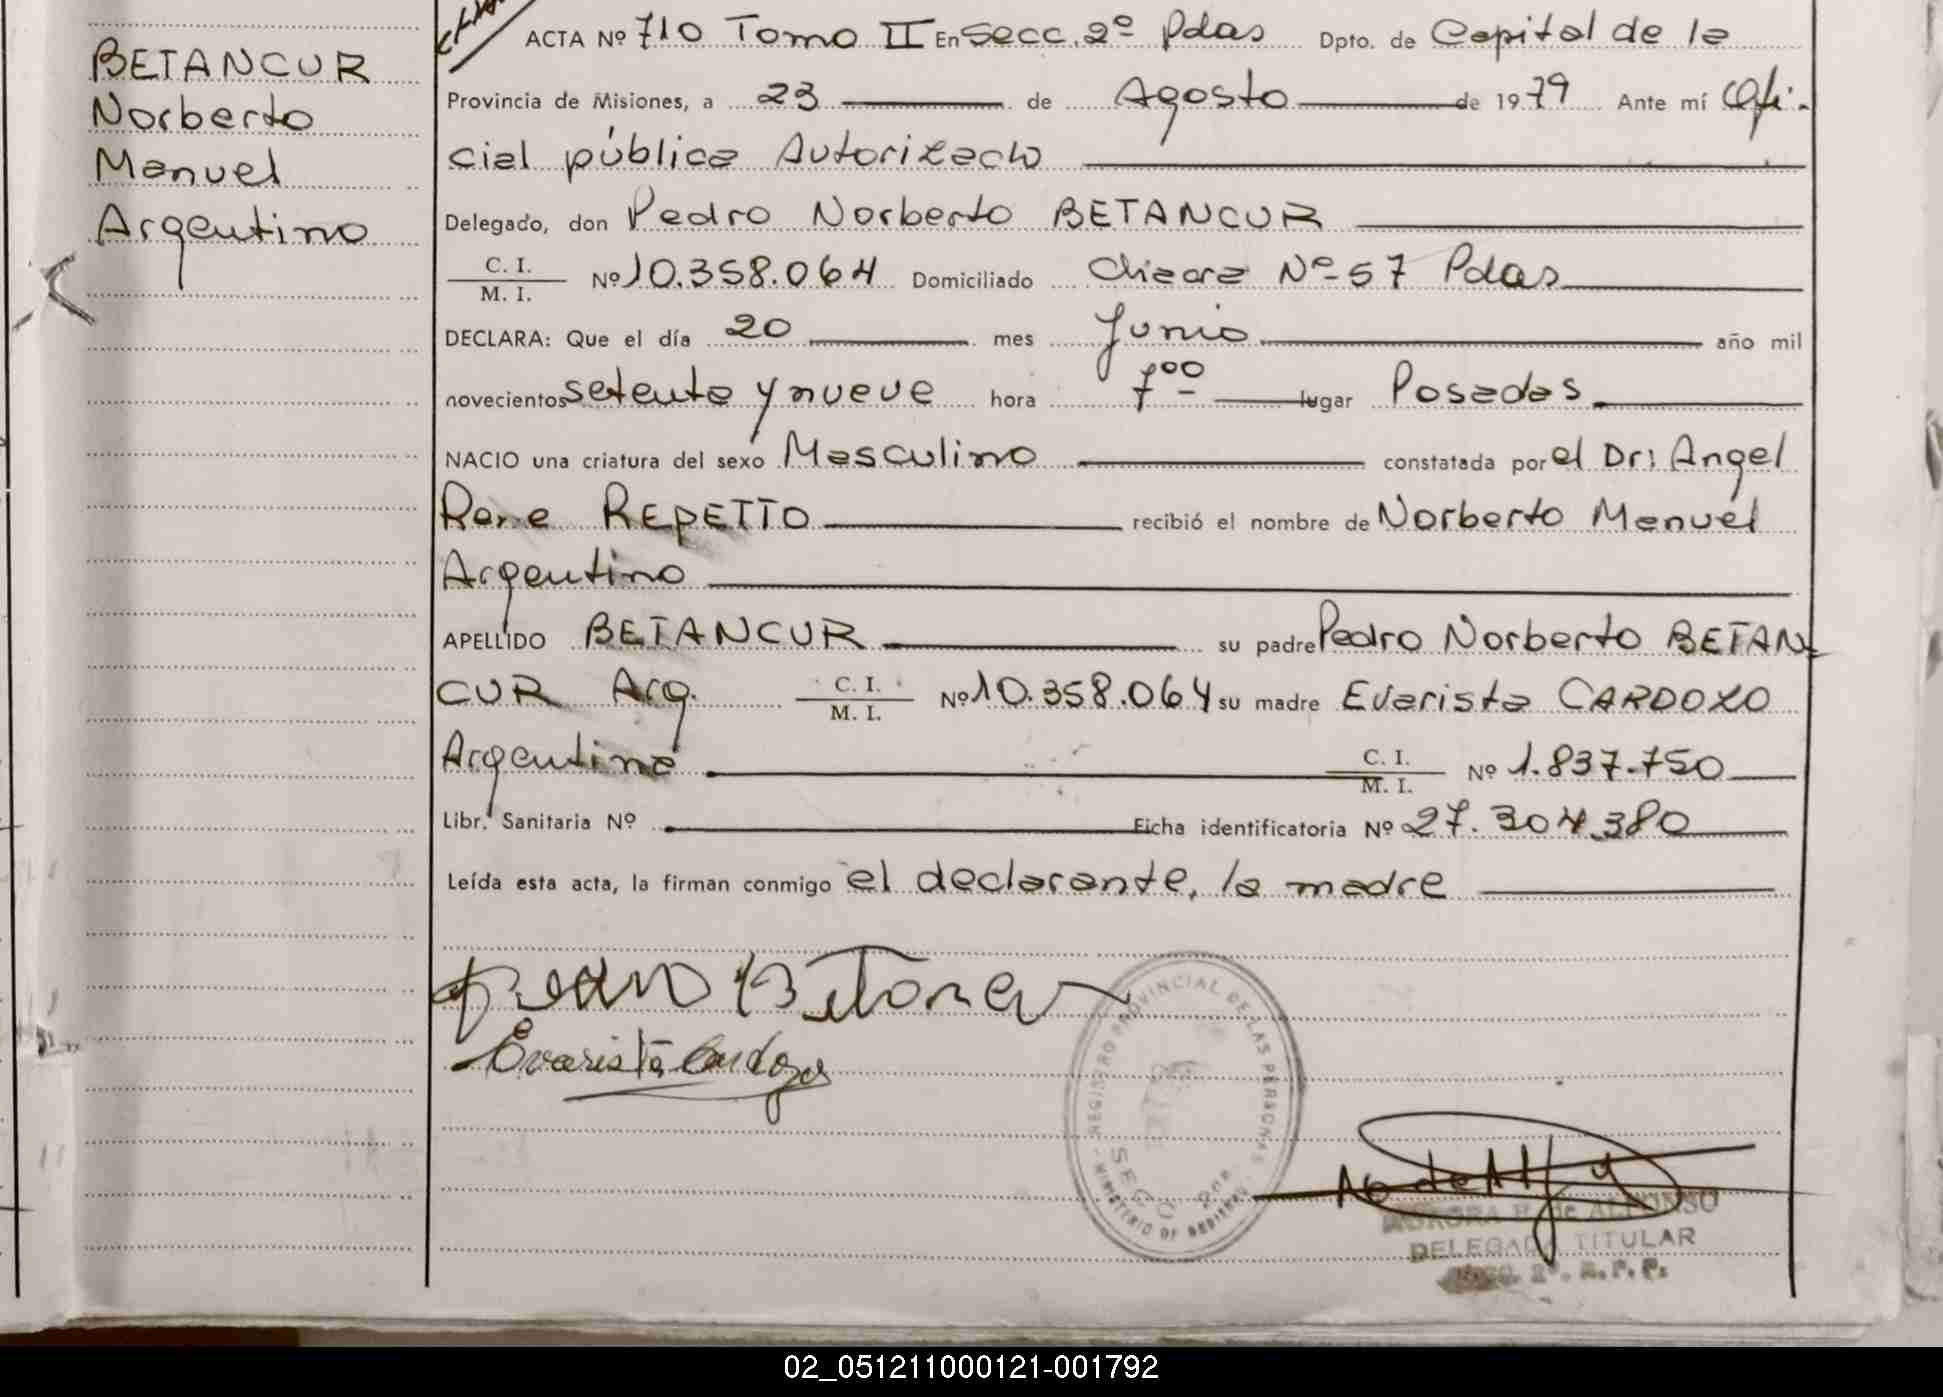 BETANCUR
Norberto
Manuel
Argentino
ACTA Nº 710 Tomo II En Secc. 2º Pdas Dpto. de Capital de la
Provincia de Misiones, a 23 de Agosto de 1979 Ante mí Ofi-
cial público Autorizado
Delegado, don Pedro Norberto BETANCUR
C. I.
M. I. Nº 10.358.064 Domiciliado Chacra Nº 57 Pdas
DECLARA: Que el día 20 mes Junio año mil
novecientos setenta y nueve hora 7 00 lugar Posadas
NACIO una criatura del sexo Masculino constatada por el Dr: Angel
Rene REPETTO recibió el nombre de Norberto Manuel
Argentino
APELLIDO BETANCUR su padre Pedro Norberto BETAN
CUR Arg. C. I. M. I. Nº 10.358.064 su madre Evarista CARDOZO
Argentina C. I. M. I. Nº 1.837.750
Libr. Sanitaria Nº Ficha identificatoria Nº 27.304.380
Leída esta acta, la firman conmigo el declarante, la madre
Pedro Betancur
Evarista Cardozo
REGISTRO PROVINCIAL DE LAS PERSONAS
MINISTERIO DE GOBIERNO
SECC. 2DA.
AURORA H. de ALFONSO
DELEGADA TITULAR
Secc. 2ª. R. P. P.
02_051211000121-001792